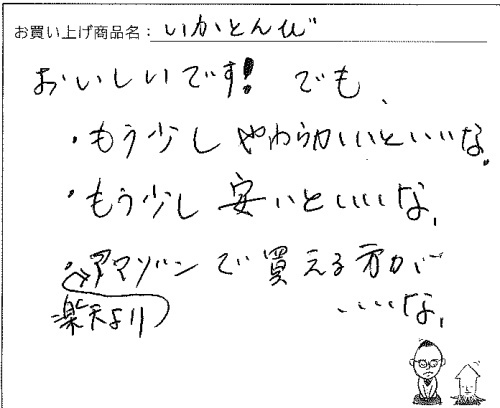 お買い上げ商品名：いかとんび
おいしいです！ でも、
・もう少しやわらかいといいな。
・もう少し安いといいな、
・アマゾンで買える方が
楽天より いいな、